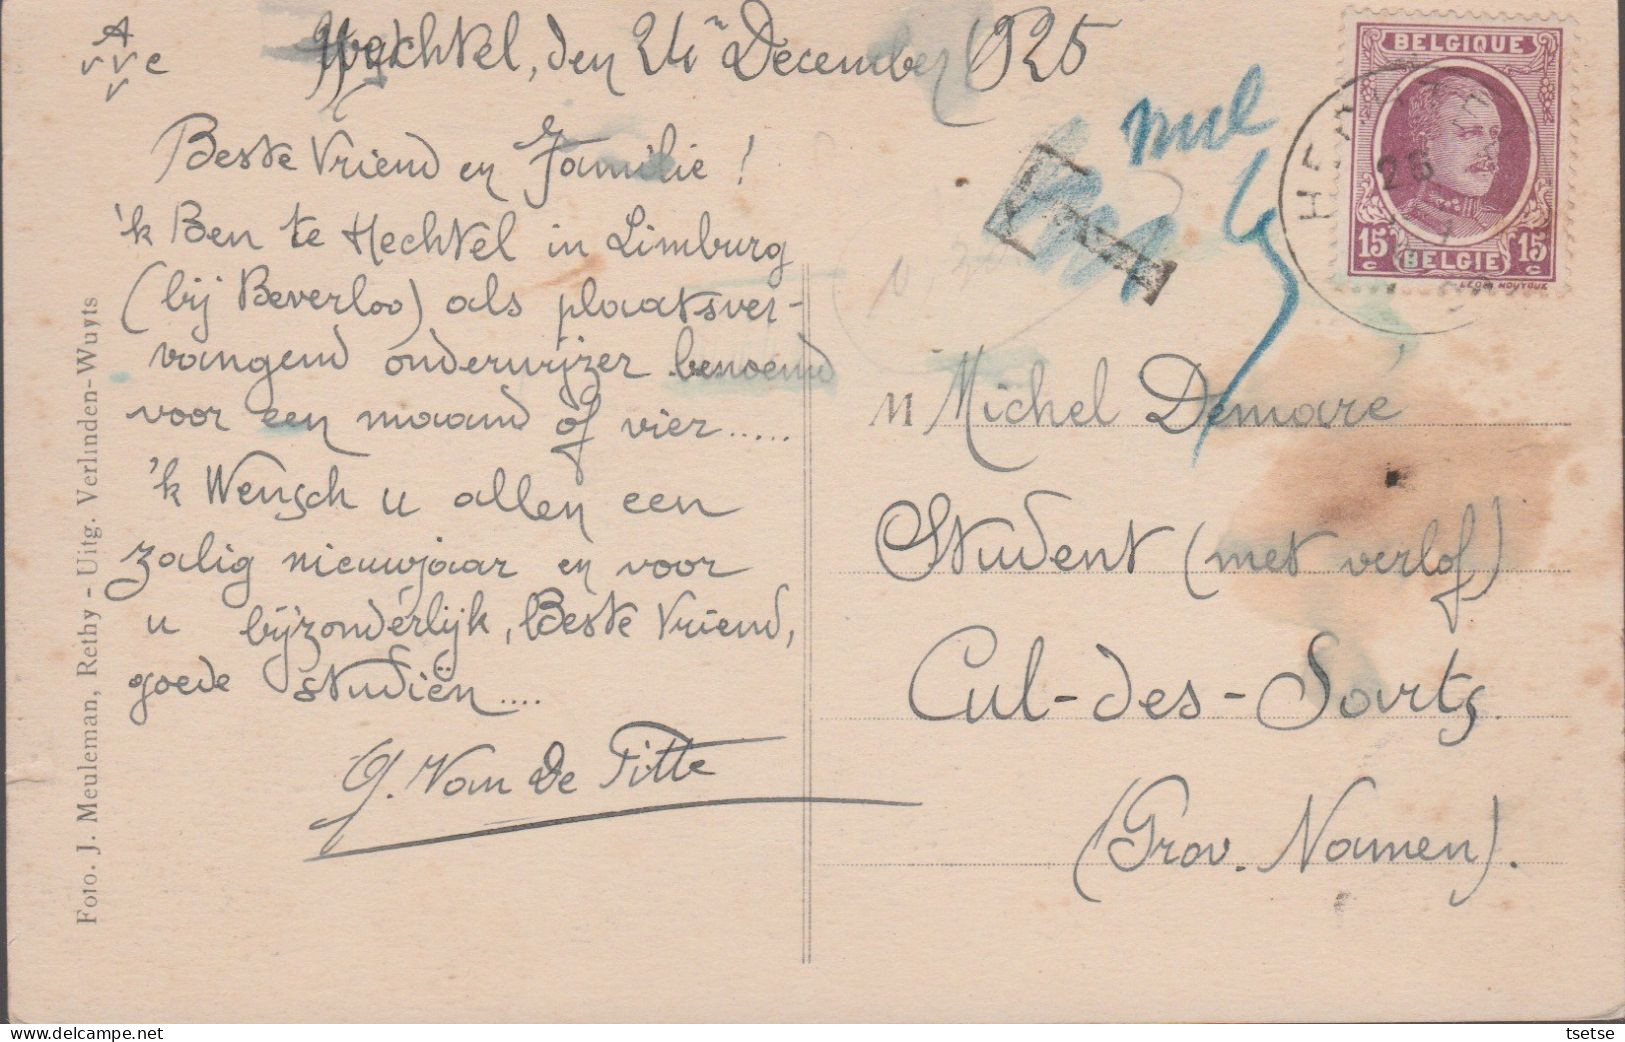 A
v v v e
Hechtel, den 24n December 1925
Beste Vriend en Familie !
'k Ben te Hechtel in Limburg
(bij Beverloo) als plaatsver-
vangend onderwijzer benoemd
voor een maand of vier.....
'k Wensch u allen een
zalig nieuwjaar en voor
u bijzonderlijk, Beste Vriend,
goede studiën....
G. Van De Pitte
Foto. J. Meuleman, Rethy - Uitg. Verlinden-Wuyts
nul
T
BELGIQUE
15 c
BELGIE
15 c
26
M Michel Demare
Student (met verlof)
Cul-des-Sarts
(Prov. Namen).
tsetse